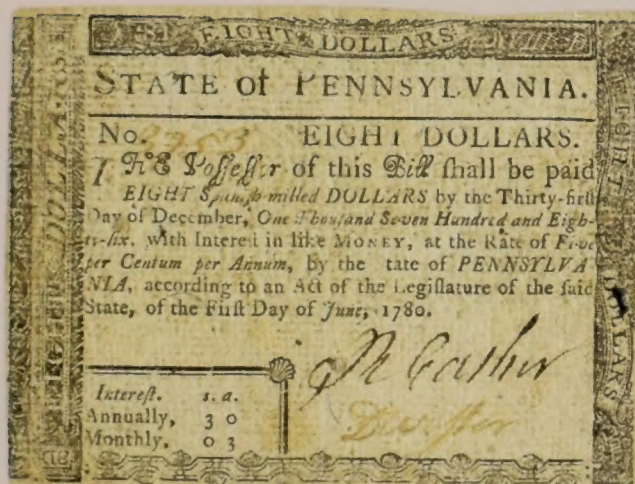 EIGHT DOLLARS
STATE of PENNSYLVANIA.
No. 2753 EIGHT DOLLARS.
THE Poſſeſſor of this Bill ſhall be paid
EIGHT Spaniſh milled DOLLARS by the Thirty-firſt
Day of December, One Thouſand Seven Hundred and Eigh-
ty-ſix, with Intereſt in like MONEY, at the Rate of Five
per Centum per Annum, by the State of PENNSYLVA
NIA, according to an Act of the Legiſlature of the ſaid
State, of the Firſt Day of June, 1780.
Intereſt. s. d.
Annually, 3 0
Monthly. 0 3
EIGHT DOLLARS